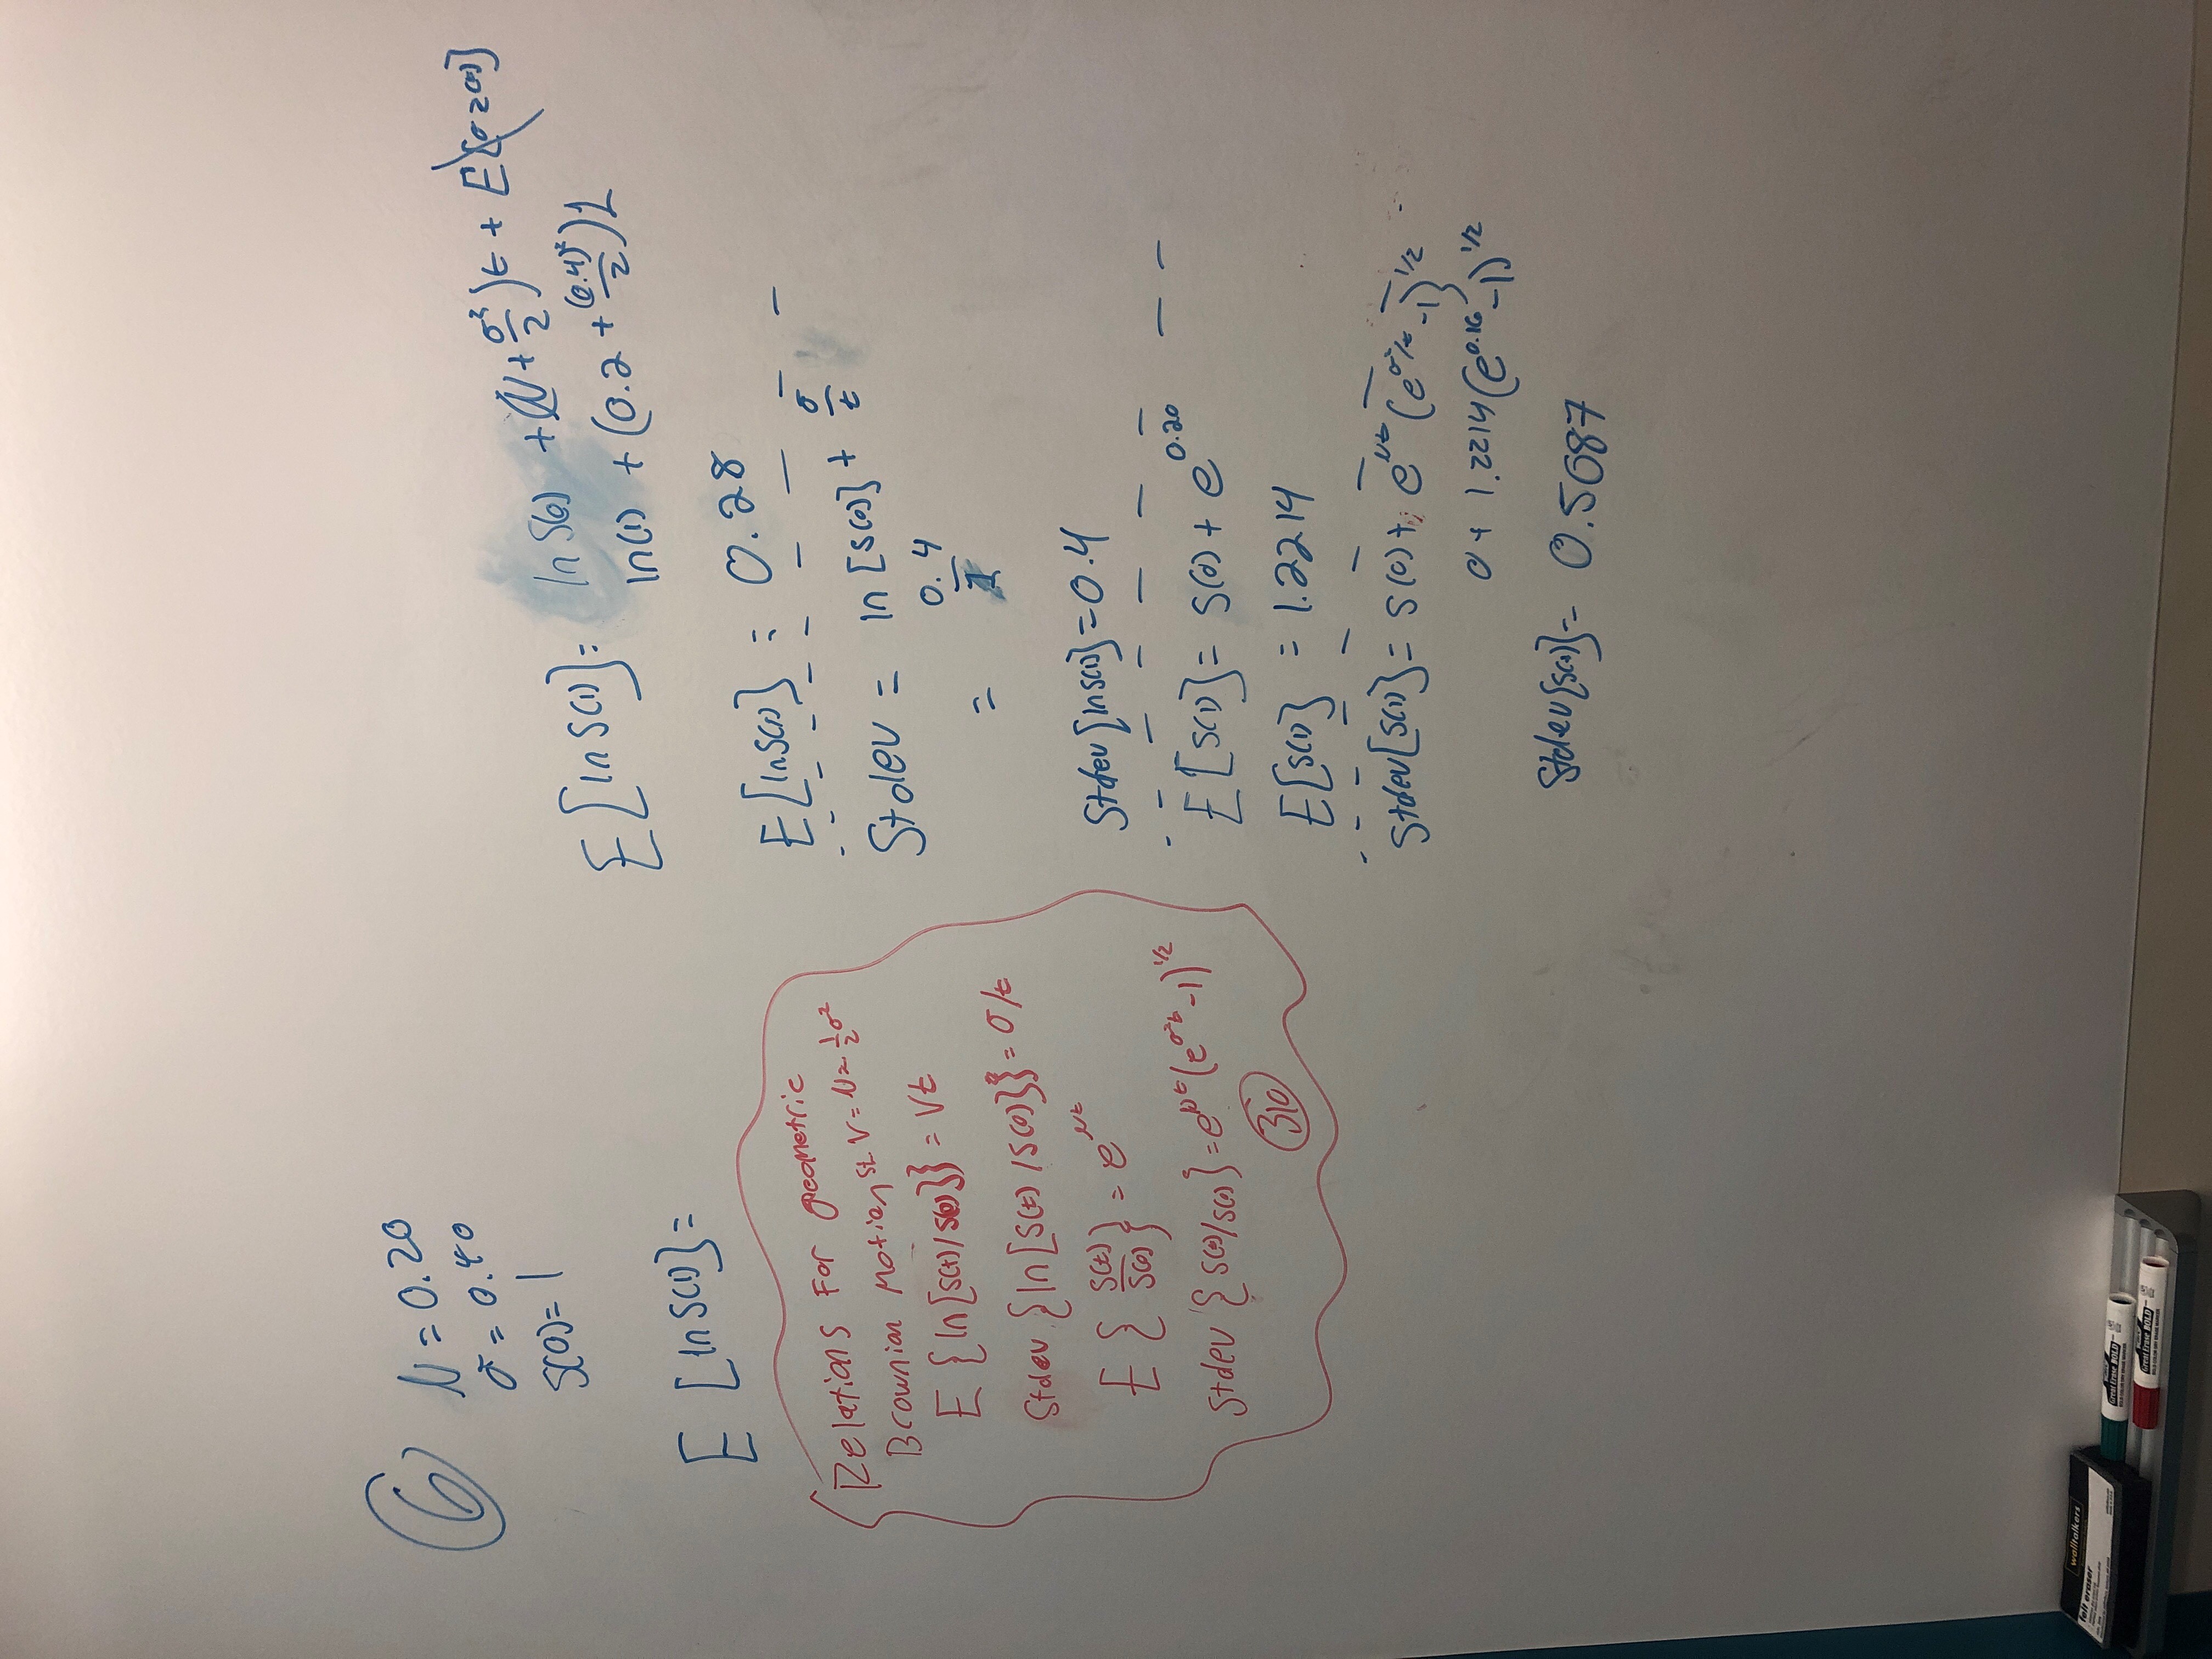 6
μ = 0.20
σ = 0.40
S(0) = 1
E [ln S(1)] =
Relations For geometric
Brownian Motion St. V = μ - ½σ²
E {ln[S(t)/S(0)]} = Vt
Stdev {ln[S(t)/S(0)]} = σ/t
E { S(t)/S(0) } = e^μt
Stdev { S(t)/S(0) } = e^μt (e^σ²t -1)^1/2
310
E[ln S(1)] = ln S(0) + (μ + σ²/2)t + E[σ z(t)]
ln(1) + (0.2 + (0.4)²/2)1
E[ln S(1)] = 0.28
Stdev = ln [S(0)] + σ/t
= 0.4/1
Stdev [ln S(1)] = 0.4
E [S(1)] = S(0) + e^0.20
E[S(1)] = 1.2214
Stdev[S(1)] = S(0) + e^μt (e^σ²/t -1)^1/2
0 + 1.2214 (e^0.16 -1)^1/2
Stdev[S(1)] = 0.5087
walltalkers
felt eraser
Great Erase BOLD
Great Erase BOLD